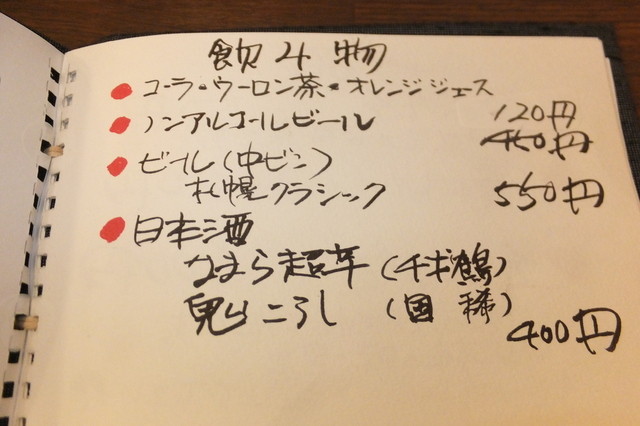 飲み物
コーラ・ウーロン茶・オレンジジュース
120円
ノンアルコールビール
450円
ビール(中ビン)
札幌クラシック
550円
日本酒
なまら超辛(千歳鶴)
鬼ころし(国稀)
400円